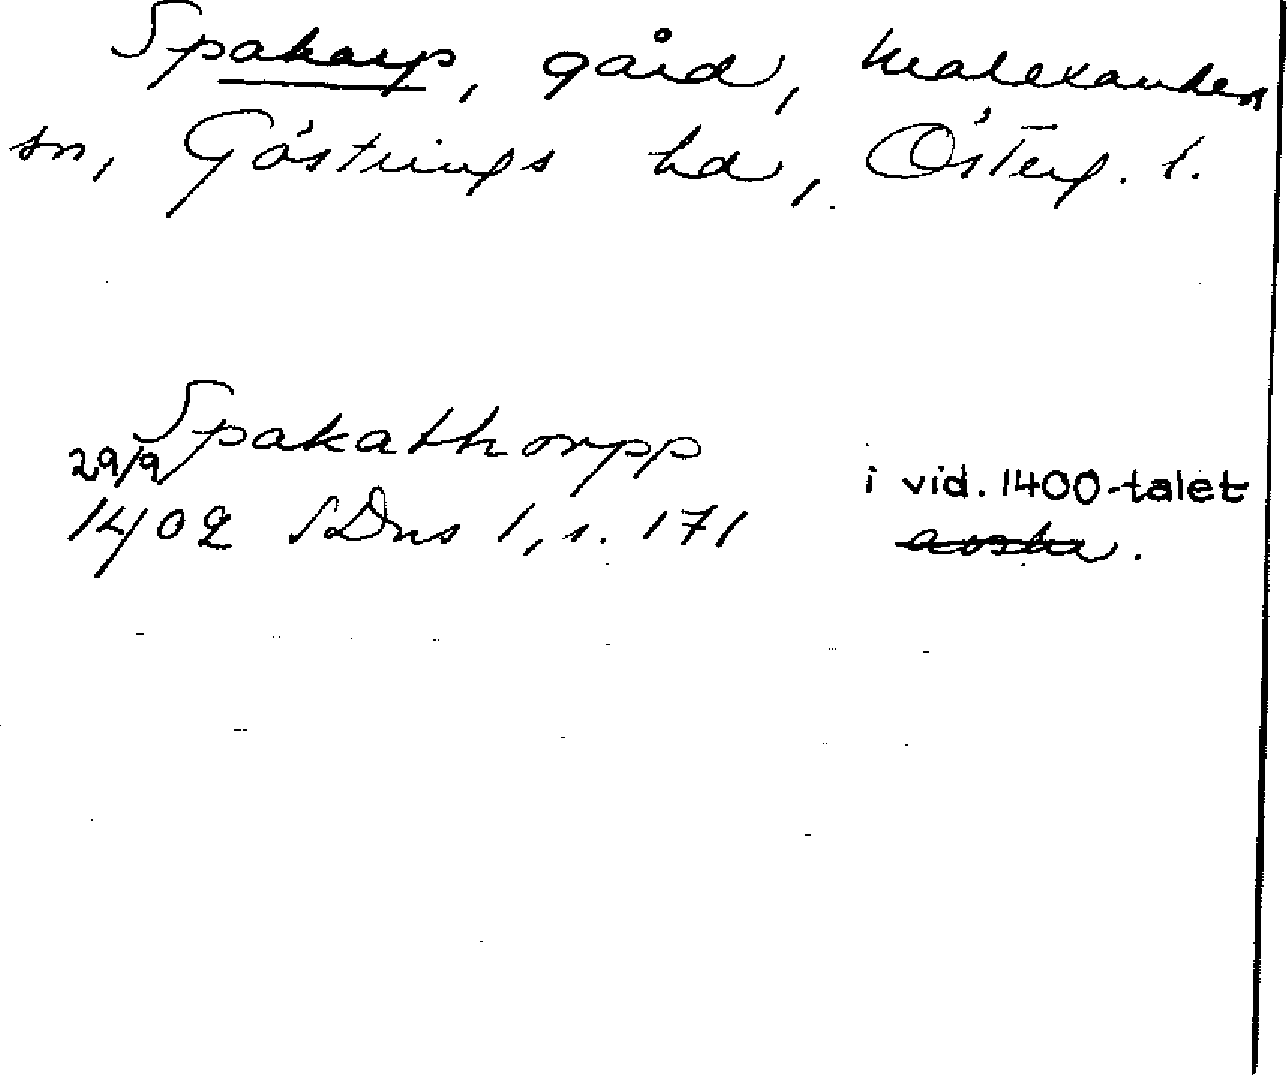 Spakarp, gård, Malexander
sn, Göstrings hd, Österg. l.
Spakathorpp
29/9
1402 SDns 1, s. 171
i vid. 1400-talet
avskr.